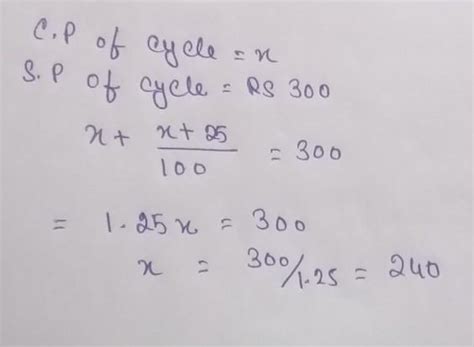 C.P of cycle = x
S.P of cycle = RS 300
x + x + 25 / 100 = 300
= 1.25x = 300
x = 300/1.25 = 240